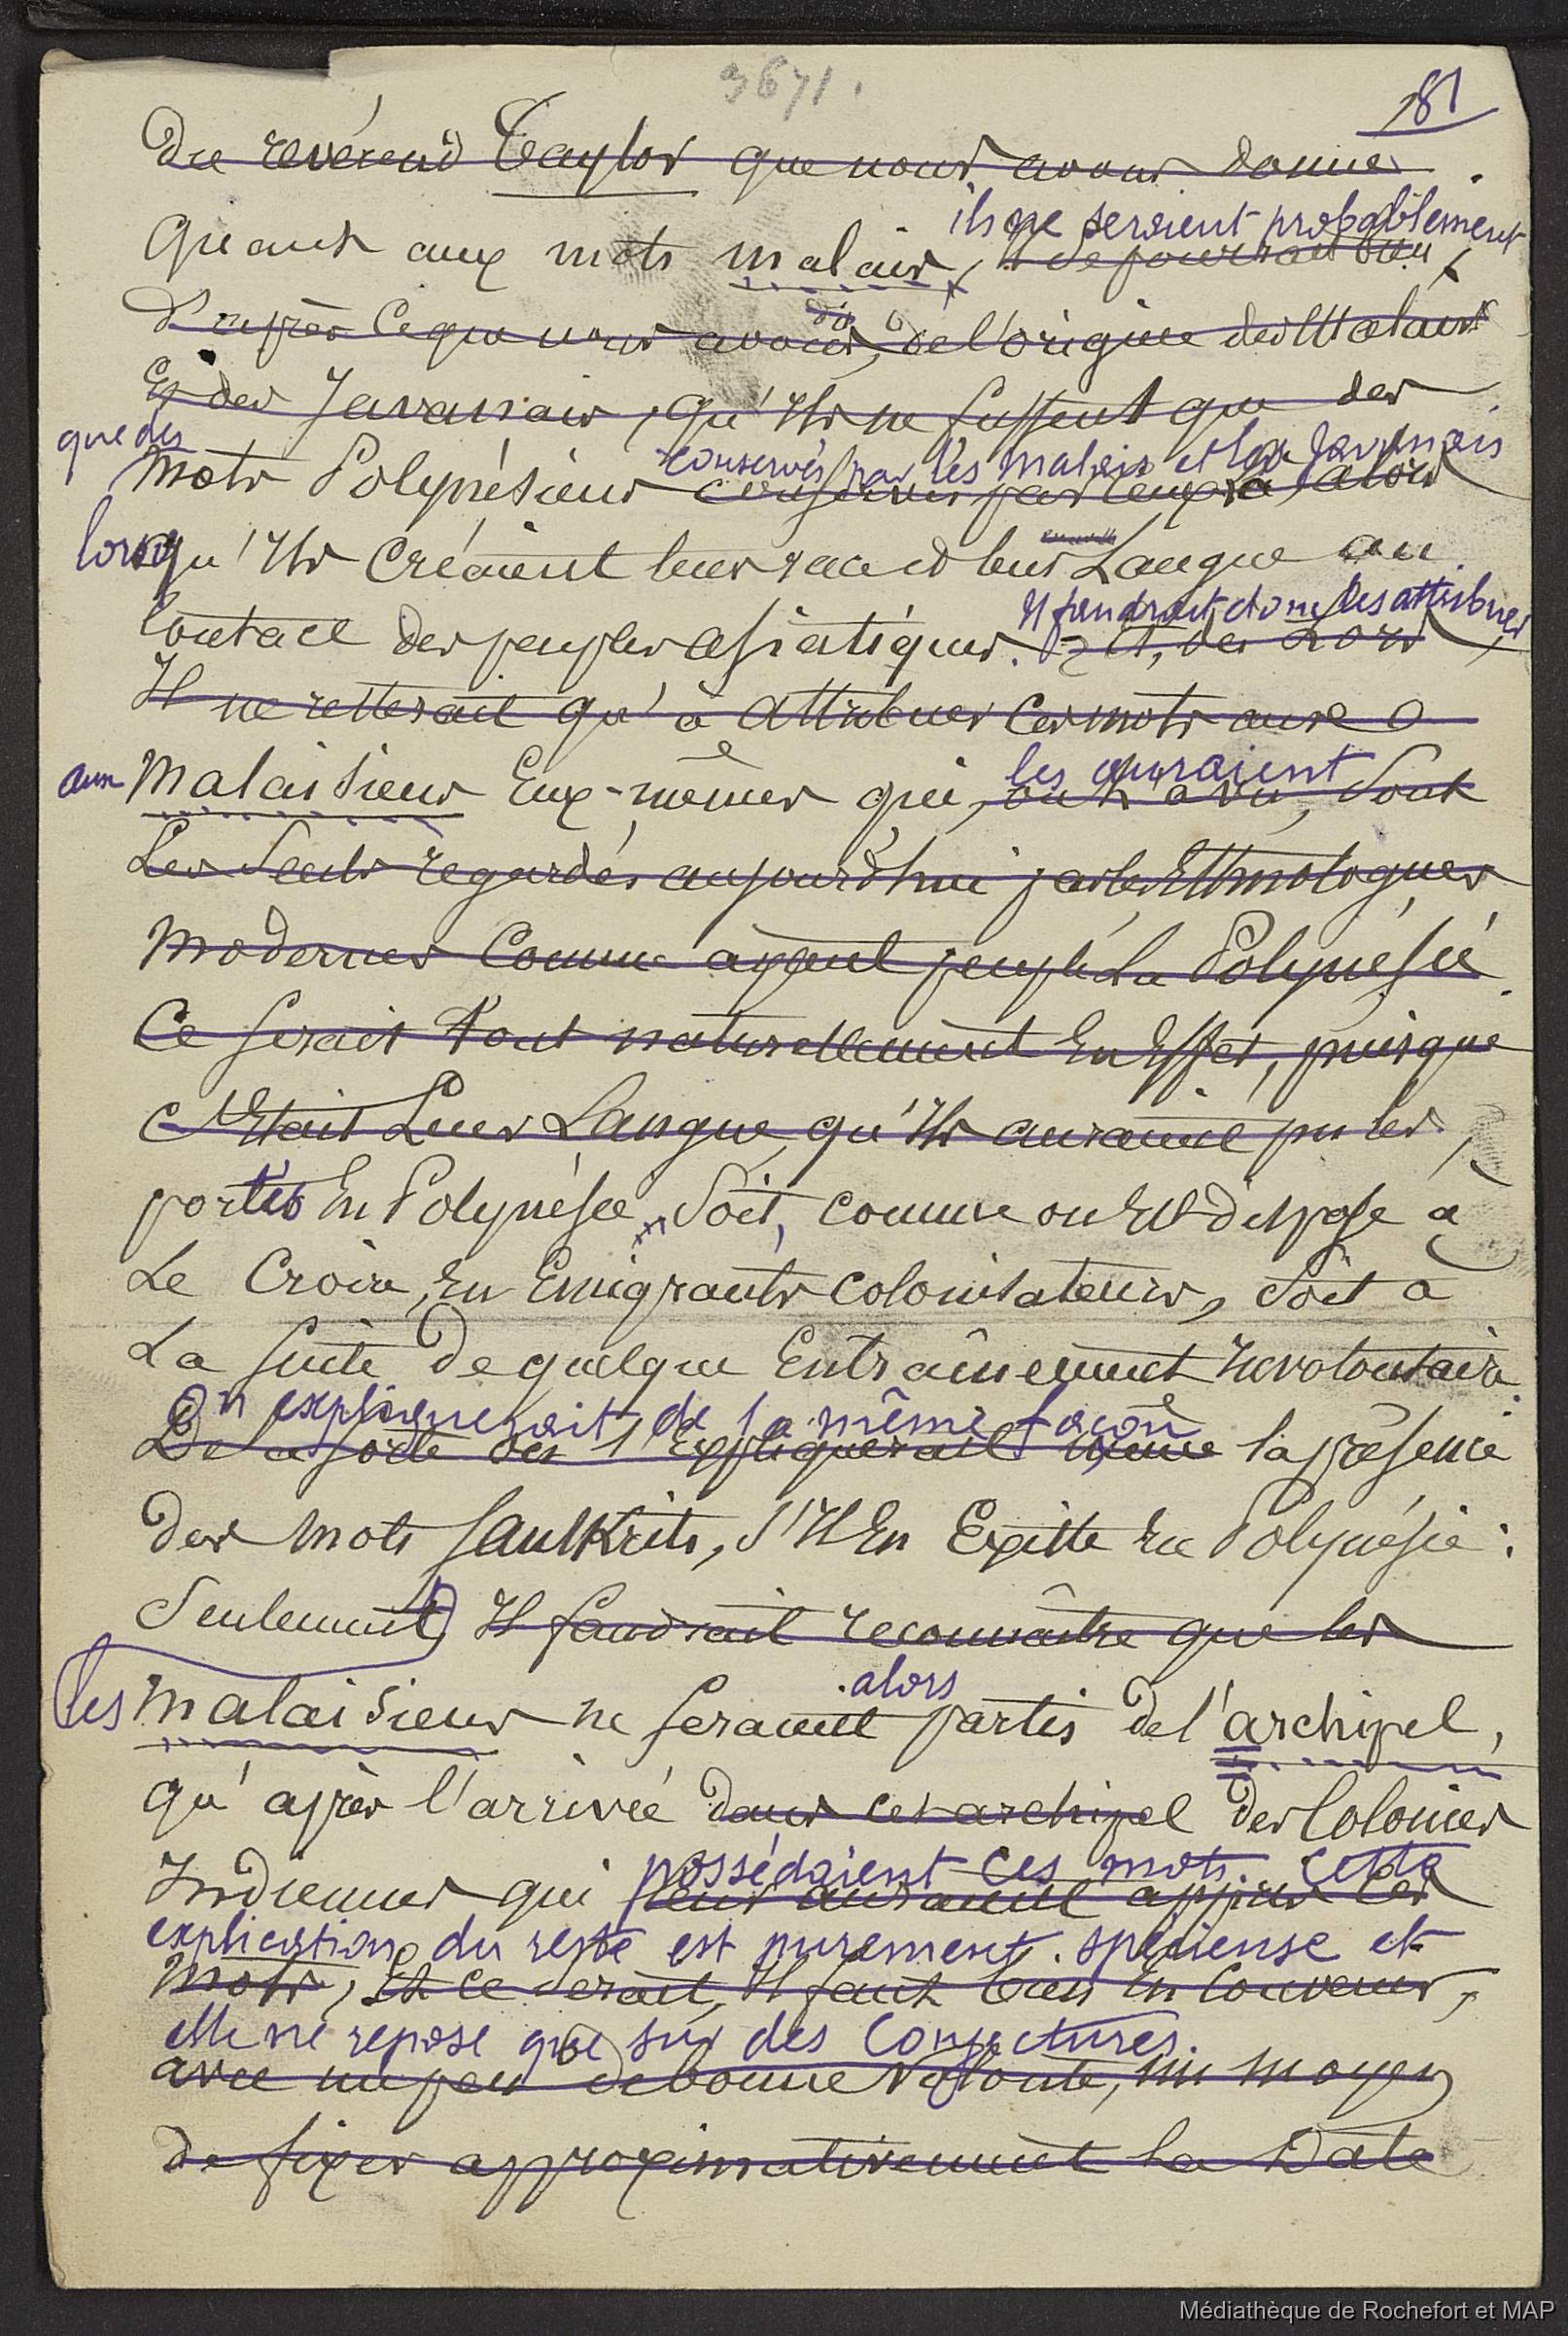 3671.
181
Du révérend Taylor que nous avons donné.
ils ne seraient probablement
Quant aux mots malais, il se pourrait bien,
dit
d'après ce que nous avons, de l'origine des Malais
Et des Javanais, qu'Ils ne fussent que des
que des
conservés par les malais et les Javanais
mots Polynésiens conservés par eux, alors
lorsqu'Ils créaient leur race et leur Langue au
Il faudrait donc les attribuer
Contact des peuples asiatiques. Et, dès Lors,
Il ne resterait qu'à attribuer ces mots aux
les auraient
aux Malaisiens Eux-mêmes qui, on l'a vu, Sont
Les Seuls regardés aujourd'hui par les Ethnologues
modernes Comme ayant peuplé La Polynésie.
Ce serait tout naturellement En Effet, puisque
C'Etait Leur Langue, qu'Ils auraient pu les
portés En Polynésie, Soit, comme on Est disposé à
Le Croire, En Emigrants colonisateurs, Soit à
La suite de quelque Entraînement Involontaire.
On expliquerait de la même façon
De la sorte des l'Expliquerait même la présence
Des mots sanskrits, S'Il En Existe En Polynésie :
Seulement, Il faudrait reconnaître que les
alors
les malaisiens ne seraient partis de l'archipel,
qu'après l'arrivée dans cet archipel des Colonies
possédaient ces mots. Cette
Indiennes qui leur auraient appris ces
explication, du reste est purement spécieuse et
mots, Et ce serait, Il faut bien En Convenir,
elle ne repose que sur des Conjectures.
avec un peu de bonne Volonté, un moyen
de fixer approximativement la Date
Médiathèque de Rochefort et MAP